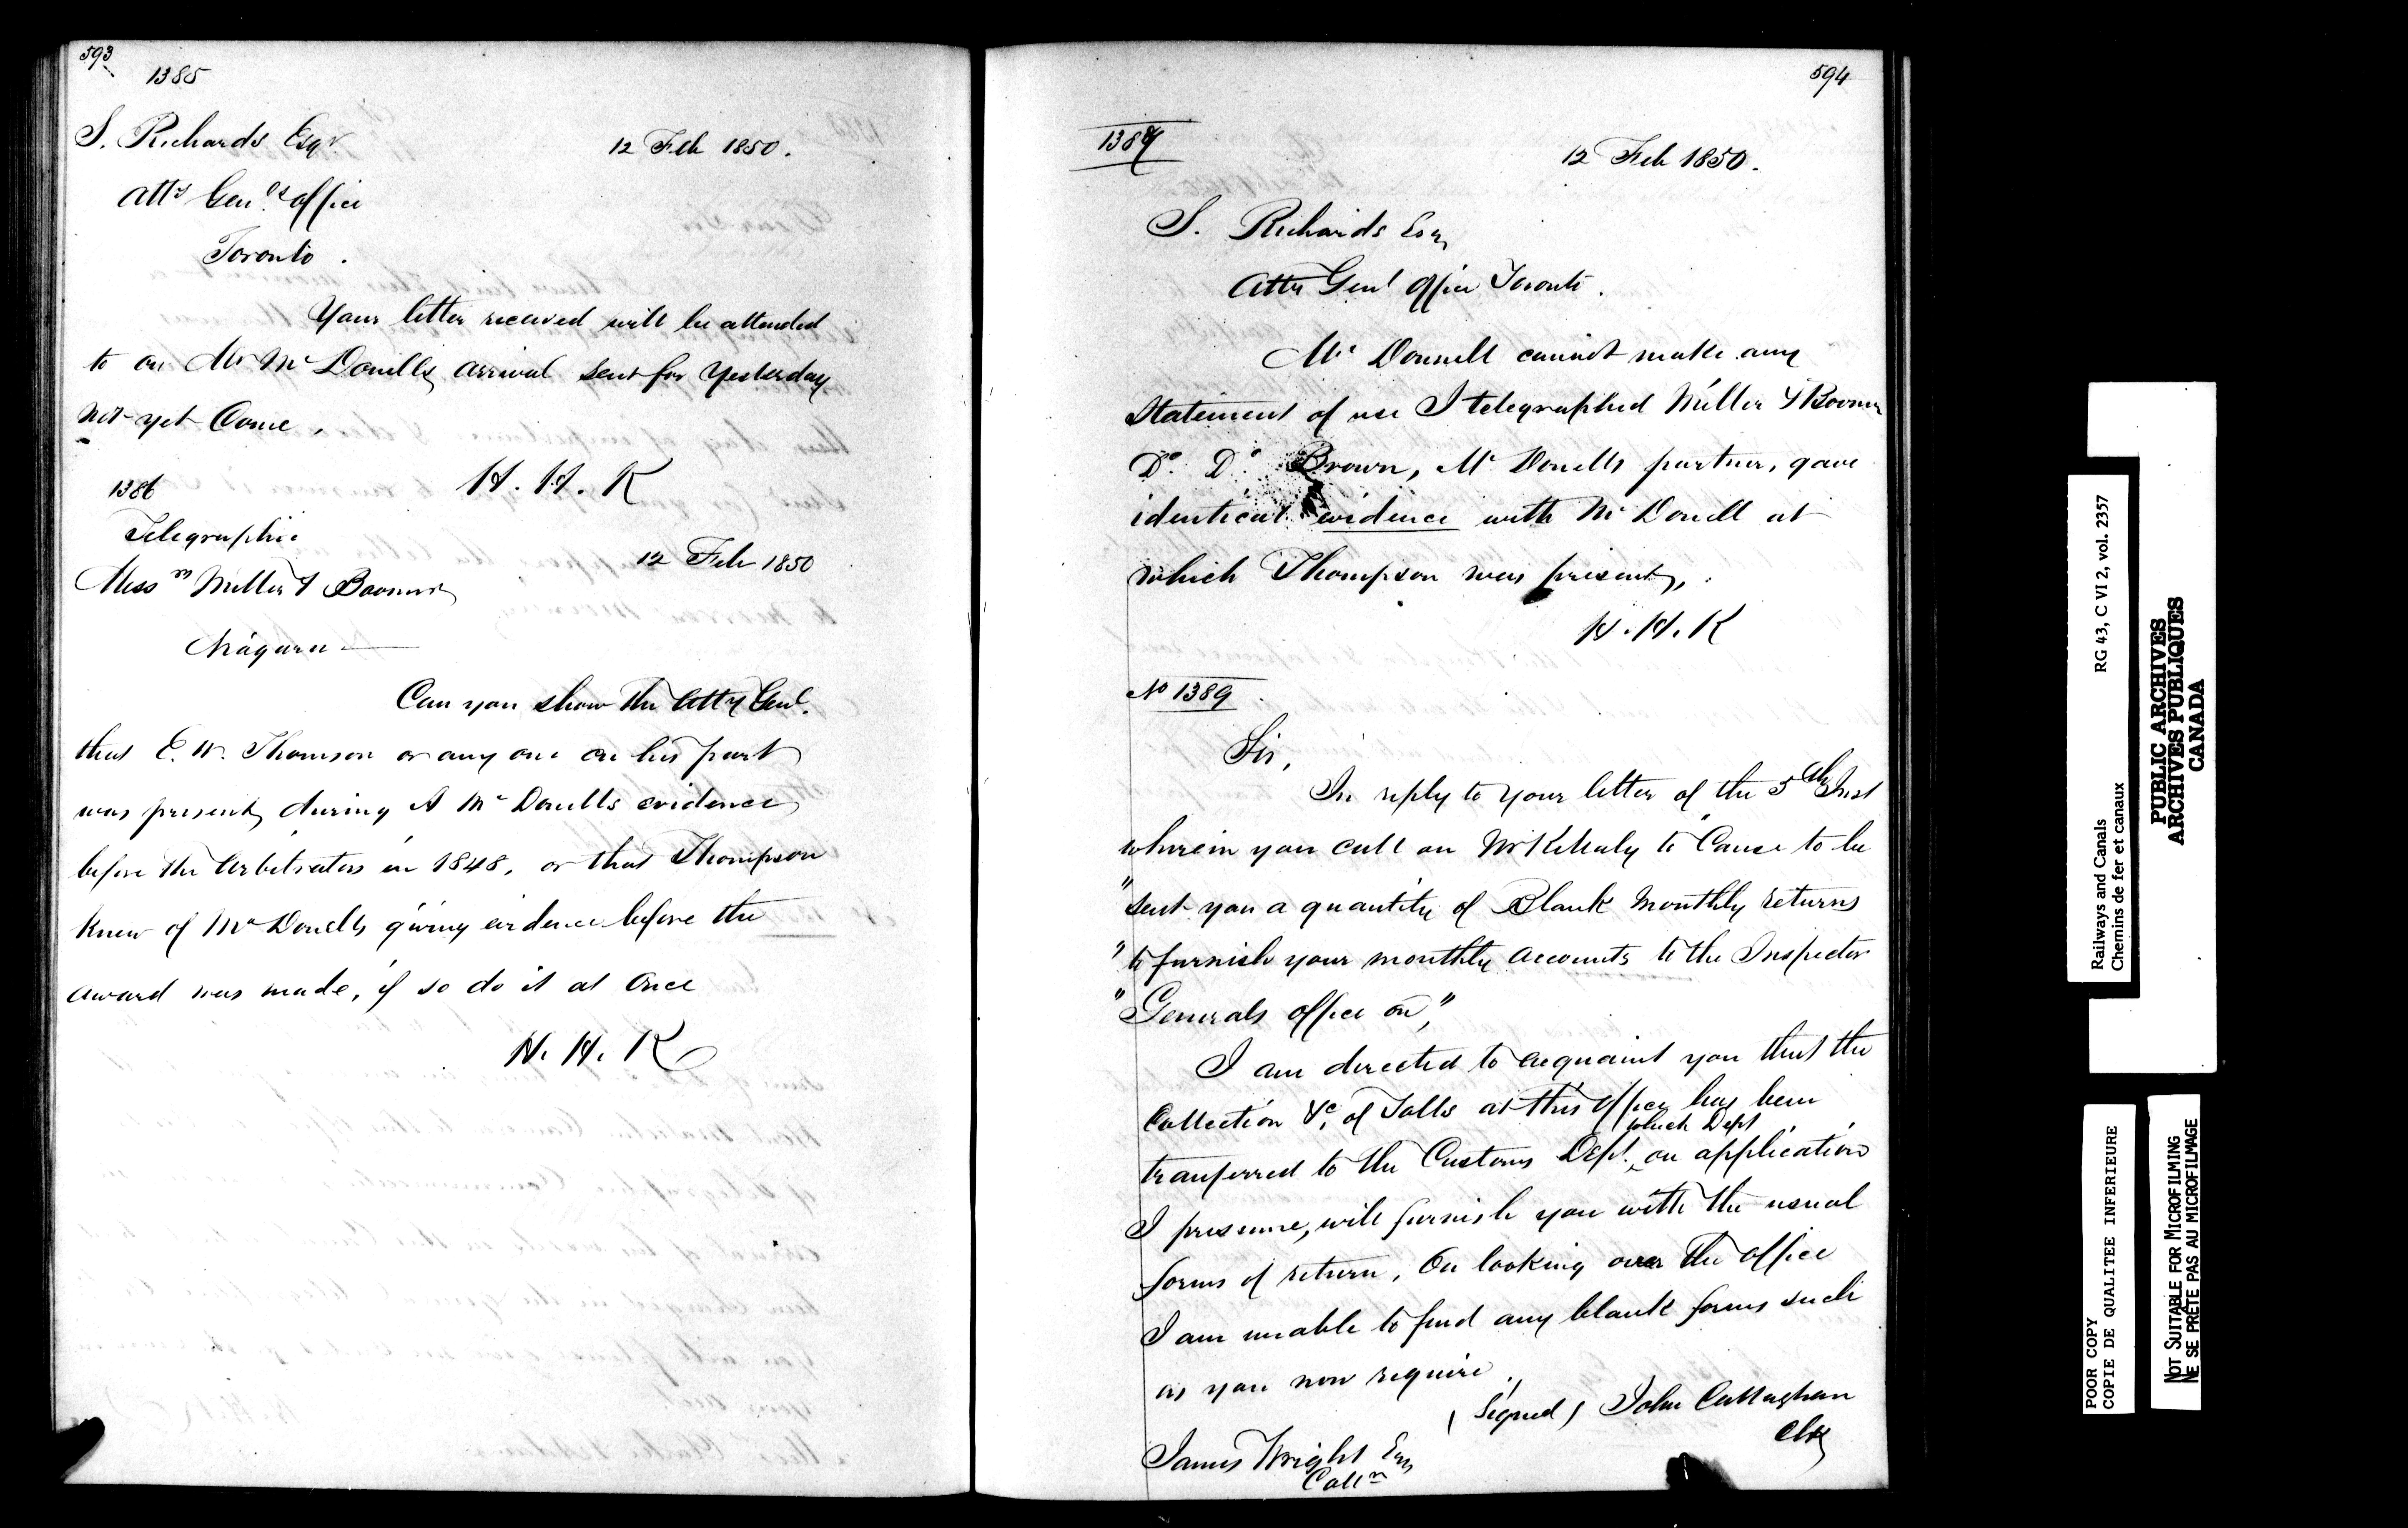 593
1385
S. Richards Esqr
12 Feb 1850.
Atty Genls office
Toronto.
Your letter received will be attended
to on Mr McDonells arrival sent for Yesterday
not yet Come,
H. H. K
1386
Telegraphic
12 Feb 1850
Messrs Miller & Boomer
Niagara
Can you show the Atty Genl.
that E. W. Thomson or any one on his part
was present, during A McDonells evidence
before the Arbitrators in 1848, or that Thompson
knew of McDonells giving evidence before the
award was made, if so do it at once
H. H. K
594
1387
12 Feb 1850.
S. Richards Esq
Atty Genl Office Toronto.
Mc Donnell cannot make any
Statement of use I telegraphed Miller & Boomer
Do. Do. Brown, McDonells partner, gave
identical evidence with McDonell at
which Thompson was present,
H. H. K
No 1389
Sir,
In reply to your letter of the 5th Inst
wherein you call on Mr Killaly to "Cause to be
"sent you a quantity of Blank Monthly returns
"to furnish your monthly accounts to the Inspector
"Generals office on,"
I am directed to acquaint you that the
Collection &c. of Tolls at this Office has been
which Dept
tranferred to the Customs Dept. on application
I presume, will furnish you with the usual
forms of return. On looking over the office
I am unable to find any blank forms such
as you now require.
(Signed) John Callaghan
Clk
James Wright Esq
Collr
Railways and Canals RG 43, C VI 2, vol. 2357
Chemins de fer et canaux
PUBLIC ARCHIVES
ARCHIVES PUBLIQUES
CANADA
POOR COPY
COPIE DE QUALITEE INFERIEURE
NOT SUITABLE FOR MICROFILMING
NE SE PRÊTE PAS AU MICROFILMAGE